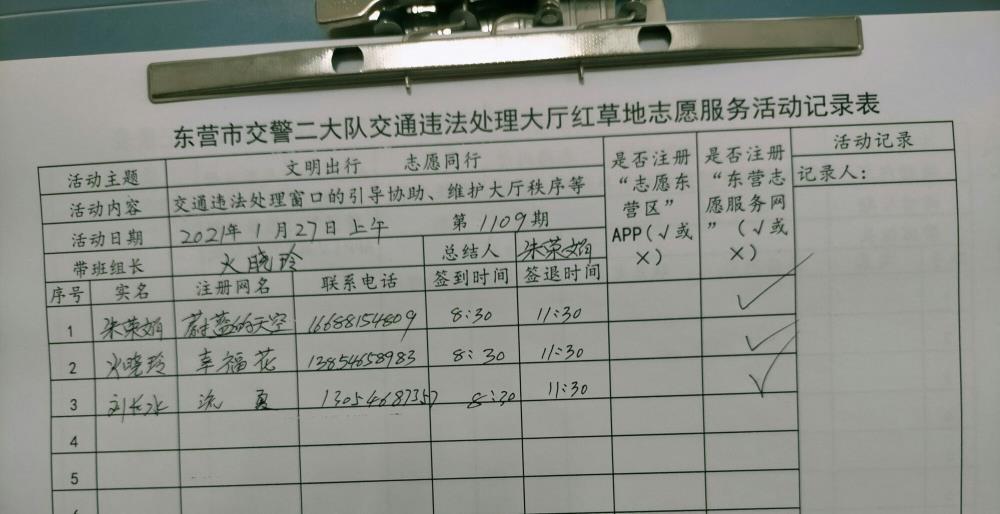 东营市交警二大队交通违法处理大厅红草地志愿服务活动记录表
活动主题 文明出行 志愿同行 是否注册“志愿东营区”APP(√或×) 是否注册“东营志愿服务网”(√或×) 活动记录
活动内容 交通违法处理窗口的引导协助、维护大厅秩序等 记录人:
活动日期 2021年1月27日上午 第1109期
带班组长 火晓玲 总结人 朱荣娟
序号 实名 注册网名 联系电话 签到时间 签退时间
1 朱荣娟 蔚蓝的天空 16688154809 8:30 11:30 √
2 火晓玲 幸福花 13854658983 8:30 11:30 √
3 刘长水 流夏 13054687357 8:30 11:30 √
4
5